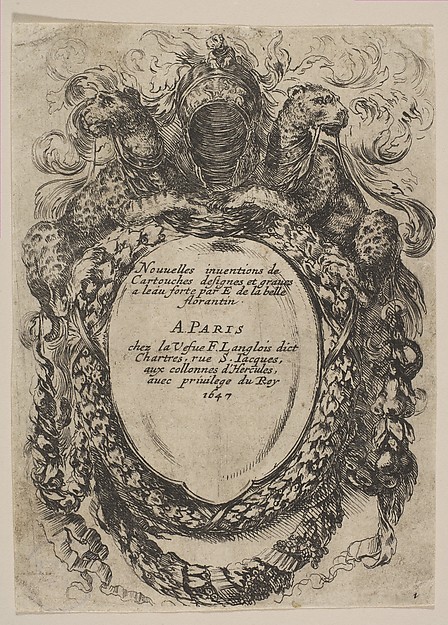 Nouuelles inuentions de
Cartouches designes et graues
a leau forte par E de la belle
florantin.
A PARIS
chez la Vefue F. Langlois dict
Chartres, rue S. Iacques,
aux collonnes d'Hercules,
auec priuilege du Roy
1647
1